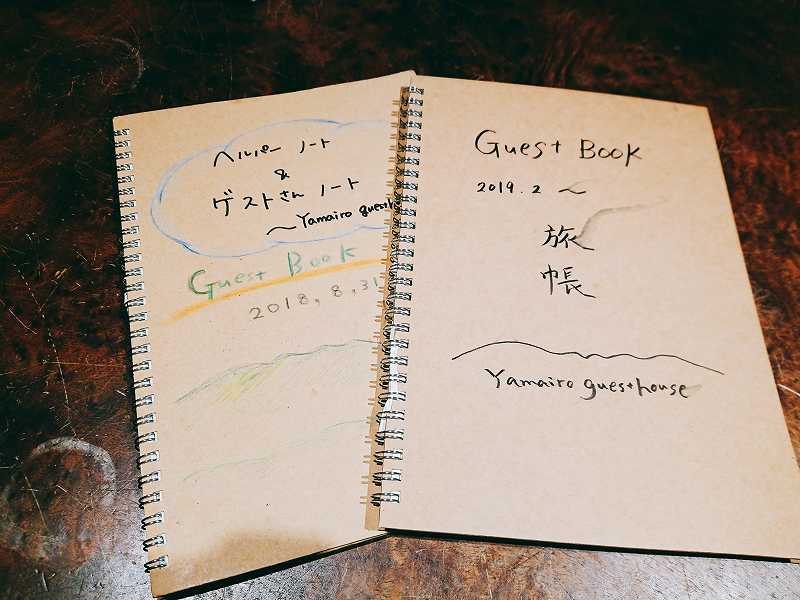 ヘルパー ノート
&
ゲストさん ノート
～Yamairo guesth
Guest Book
2018, 8, 31
Guest Book
2019. 2 ～
旅
帳
Yamairo guesthouse